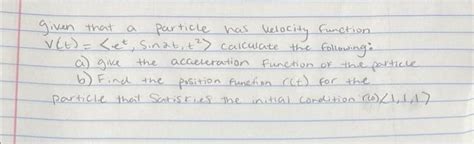 given that a particle has velocity function
V(t) = <e^t, Sin2t, t²> calculate the following:
a) give the acceleration function of the particle
b) Find the position function r(t) for the
particle that Satisfies the initial condition r(0)<1,1,1>